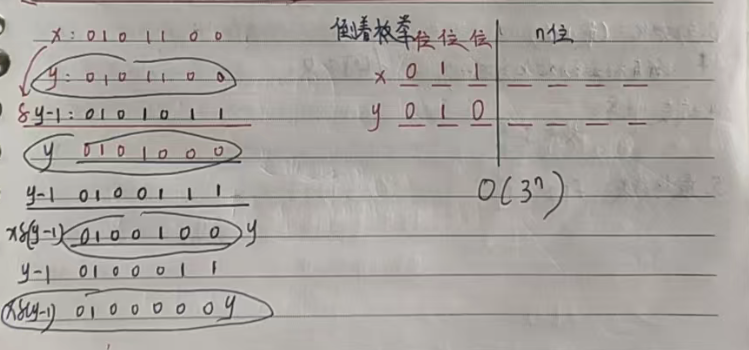 x: 0 1 0 1 1 0 0
y: 0 1 0 1 1 0 0
& y-1: 0 1 0 1 0 1 1
y 0 1 0 1 0 0 0
y-1 0 1 0 0 1 1 1
x&(y-1) 0 1 0 0 1 0 0 y
y-1 0 1 0 0 0 1 1
x&(y-1) 0 1 0 0 0 0 0 y
倒着枚举 位 位 位 n位
x 0 1 1
y 0 1 0
O(3ⁿ)